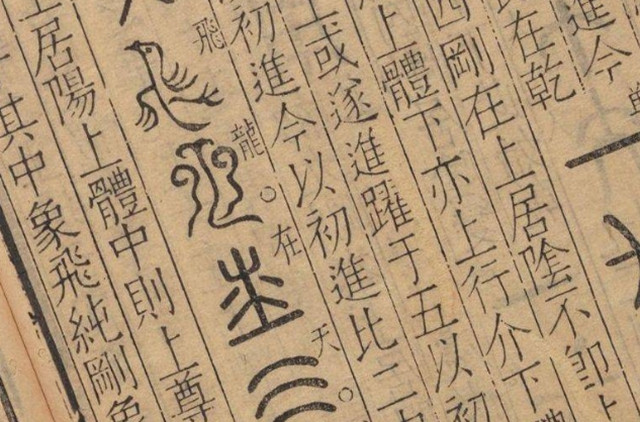 進今
在乾
四剛在上居陰不卽上
上體下亦上行介下
上或遂進躍于五以初
初進今以初進比二
飛龍。在天。
上居陽上體中則上尊
其中象飛純剛象